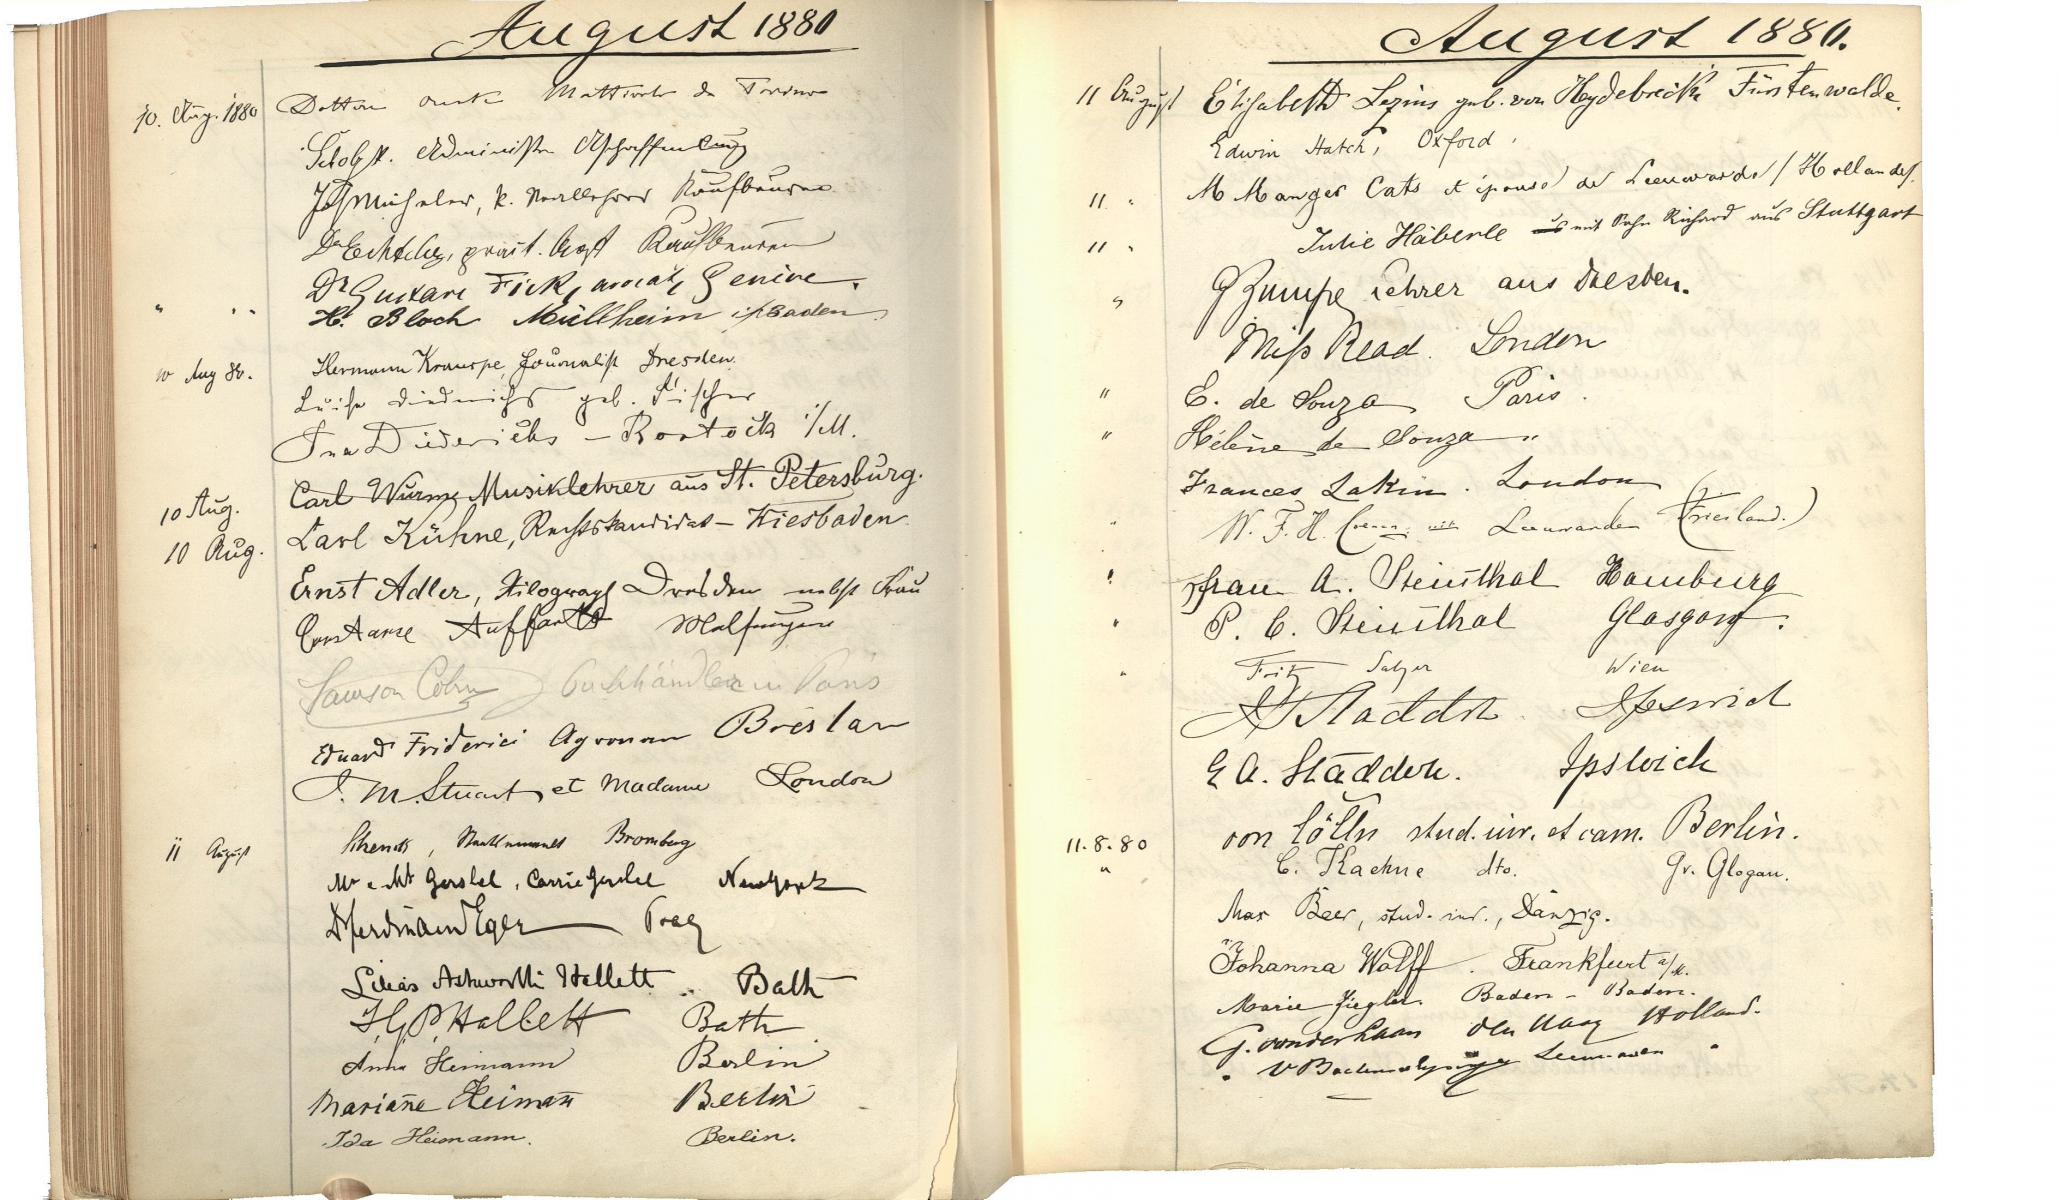 August 1880
10. Aug. 1880
Administr Aschaffenburg
k. Reallehrer Kaufbeuren
prakt. Arzt Kaufbeuren
Dr Gustave Fick, avocat, Genève.
" " "
H. Bloch Müllheim i/Baden
10 Aug 80. Hermann Krauspe, Journalist Dresden.
Luise Diedrichs geb. Fischer
Ina Diederichs – Rostock i/M.
Carl Wurm, Musiklehrer aus St. Petersburg.
10 Aug.
Carl Kühne, Rechtskandidat – Wiesbaden
10 Aug.
Ernst Adler, Xilograph Dresden nebst Frau
Constanze Auffarth
Samson Cohn Buchhändler in Paris
Eduard Friderici Agronom Breslau
J. M. Stuart et Madame London
11 August Schenck, Bromberg
Mr & Mrs Gerstel, Carrie Gerstel New York
Dr Ferdinand Eger Prag
Lilias Ashworth Hallett .. Bath
T. G. P. Hallett Bath
Anna Heimann Berlin
Mariane Heimann Berlin
Ida Heimann. Berlin.
August 1880.
11 August Elisabeth Lezius geb. von Heydebreck Fürstenwalde.
Edwin Hatch, Oxford.
11 " M Manger Cats et épouse de Leeuwarde / Hollande/.
11 " Julie Häberle mit Sohn Richard aus Stuttgart
" G Zumpe Lehrer aus Dresden.
Miss Read. London
" E. de Souza Paris.
" Hélène de Souza "
Frances Lakin. London
" W. F. H. Leeuwarden (Friesland.)
" Frau A. Steinthal Hamburg
" P. C. Steinthal Glasgow.
" Fritz Salzer Wien
Stadden Ipswich
E A. Stadden. Ipswich
11.8.80 von Cölln stud. iur. et cam. Berlin.
" C. Kaehne dto. Gr. Glogau.
Max Beer, stud. iur., Danzig.
Johanna Wolff. Frankfurt a/M.
Marie Ziegler. Baden-Baden.
G. vonder Haan den Haag Holland.